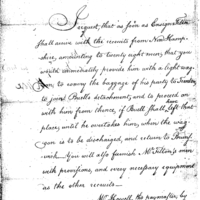 I request, that as soon as Ensign
shall arrive with the recruits from New Hamp-
shire, amounting to twenty eight men, that you
would immediately provide him with a light wag-
gon to convey the baggage of his party to
to join Buells detachment; and to proceed on
with him from thence, if Buell shall have left that
place; until he overtakes him, when the wag-
gon is to be discharged, and return to
wich. You will also furnish Mr. men
with provisions, and every necessary equipment
as the other recruits—
Mr. Howell, the paymaster, by